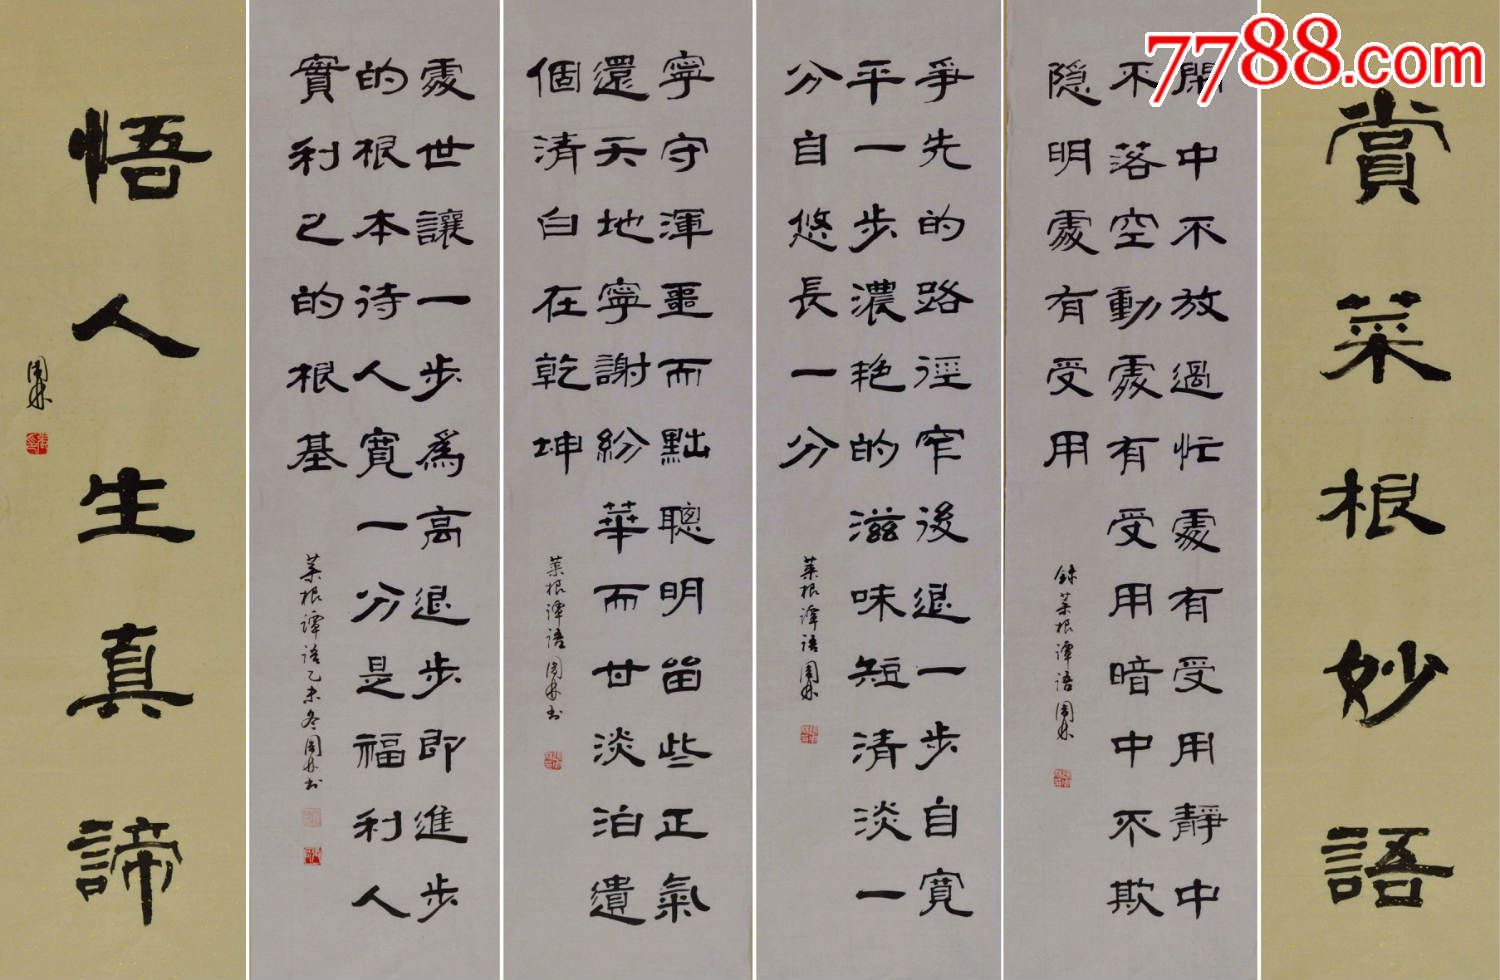 7788.com
賞菜根妙語
閑中不放過忙處有受用靜中
不落空動處有受用暗中不欺
隐明處有受用
錄菜根譚語周林
爭先的路徑窄後退一步自寬
平一步濃艳的滋味短清淡一
分自悠長一分
菜根譚語周林
寧守渾噩而黜聰明留些正氣
還天地寧謝紛華而甘淡泊遺
個清白在乾坤
菜根譚語周林书
處世讓一步爲高退步即進步
的根本待人寬一分是福利人
實利己的根基
菜根譚語乙未冬周林书
悟人生真諦
周林